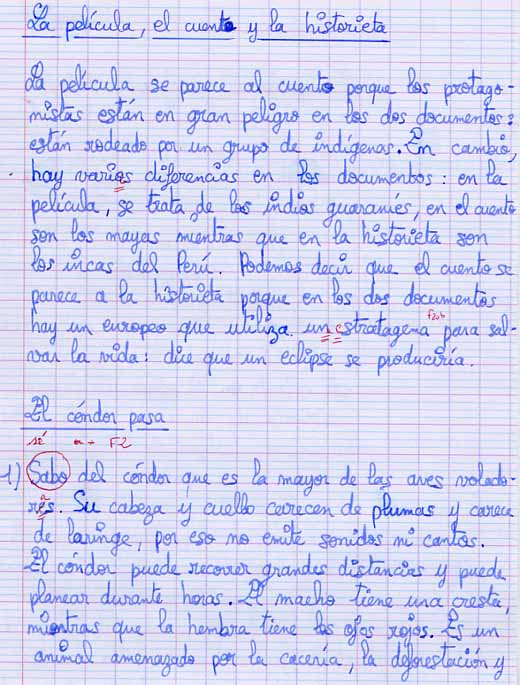 La película, el cuento y la historieta
La película se parece al cuento porque los protago-
nistas están en gran peligro en los dos documentos:
están rodeado por un grupo de indígenas. En cambio,
hay varios diferencias en los documentos: en la
película, se trata de los indios guaraníes, en el cuento
son los mayas mientras que en la historieta son
los incas del Perú. Podemos decir que el cuento se
parece a la historieta porque en los dos documentos
hay un europeo que utiliza un estratagema para sal-
var la vida: dice que un eclipse se produciría.
El cóndor pasa
sé a + F2
1) Sabo del cóndor que es la mayor de las aves volado-
res. Su cabeza y cuello carecen de plumas y carece
de laringe, por eso no emite sonidos ni cantos.
El cóndor puede recorrer grandes distancias y puede
planear durante horas. El macho tiene una cresta,
mientras que la hembra tiene los ojos rojos. Es un
animal amenazado por la cacería, la deforestación y